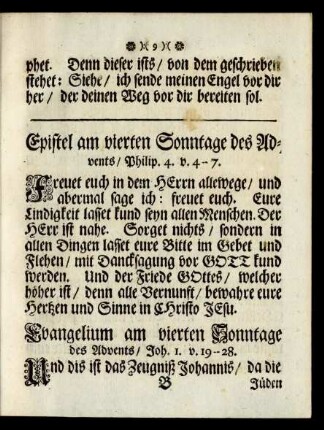 9
phet. Denn dieser ists/ von dem geschrieben
stehet: Siehe/ ich sende meinen Engel vor dir
her/ der deinen Weg vor dir bereiten sol.
Epistel am vierten Sonntage des Ad-
vents/ Philip. 4. v. 4-7.
Freuet euch in dem HErrn allewege/ und
abermal sage ich: freuet euch. Eure
Lindigkeit lasset kund seyn allen Menschen. Der
HErr ist nahe. Sorget nichts/ sondern in
allen Dingen lasset eure Bitte im Gebet und
Flehen/ mit Dancksagung vor GOTT kund
werden. Und der Friede GOttes/ welcher
höher ist/ denn alle Vernunft/ bewahre eure
Hertzen und Sinne in CHristo JEsu.
Evangelium am vierten Sonntage
des Advents/ Joh. 1. v. 19-28.
Und dis ist das Zeugniß Johannis/ da die
B Jüden